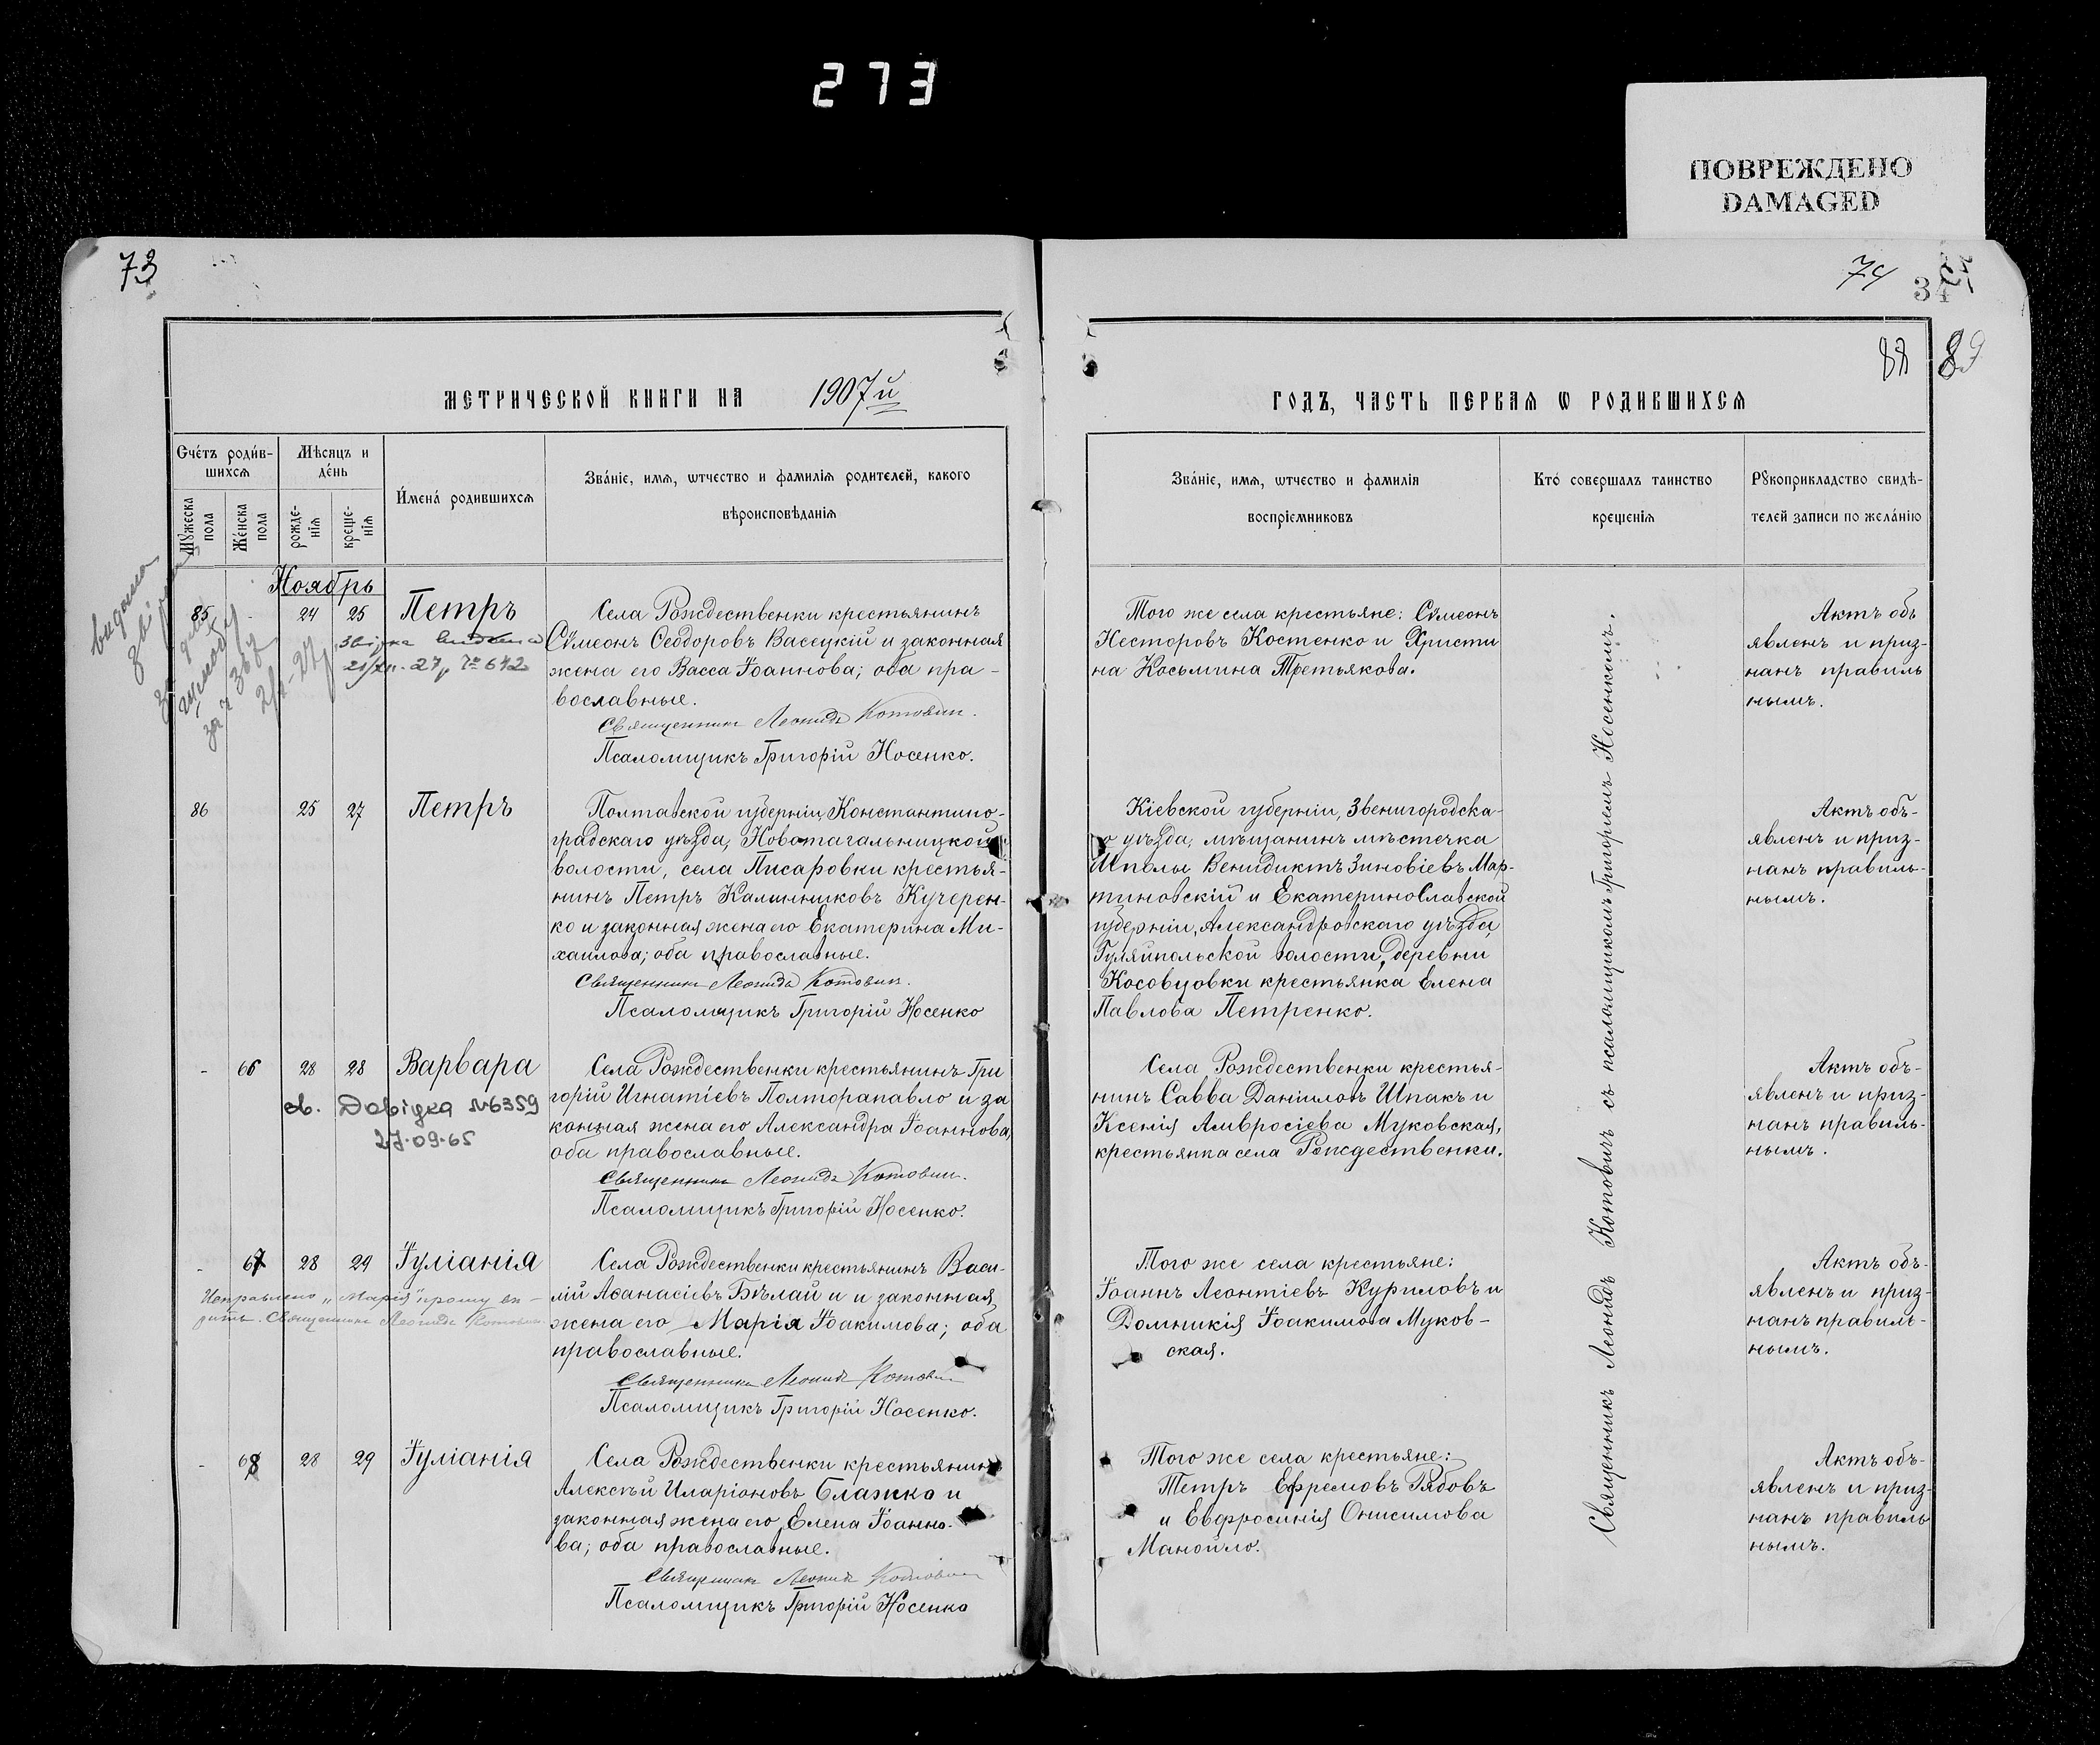 273
ПОВРЕЖДЕНО
DAMAGED
73
74
34
88
89
МЕТРИЧЕСКОЙ КНИГИ НА 1907й
ГОДЪ, ЧАСТЬ ПЕРВАЯ Ѡ РОДИВШИХСЯ
Счéтъ роди́в-
шихся
Мѣсяцъ и
дéнь
Мꙋжеска
пола
Жéнска
пола
рожде-
нія
креще-
нія
И́мена́ родившихся
Зва́ніе, имя, ѿчество и фамилія родителей, какого
вѣроисповѣданія
Зва́ніе, имя, ѿчество и фамилія
воспріемниковъ
Кто́ совершалъ таинство
крещенія
Рꙋкоприкладство свидѣ-
телей записи по жела́нію
Ноябрь
85 - 24 25 Петръ
Села Рождественки крестьянинъ
Сѵмеонъ Ѳеодоровъ Васецкій и законная
жена его Васса Іоаннова; оба пра-
вославные.
Священникъ Леонидъ Котовичъ.
Псаломщикъ Григорій Носенко.
Того же села крестьяне: Сѵмеонъ
Несторовъ Костенко и Христи
на Косьмина Третьякова.
Актъ объ
явленъ и приз-
нанъ правиль
нымъ.
27р № 642
86 25 27 Петръ
Полтавской губерніи, Константино-
градскаго уѣзда, Новотагальницкой
волости, села Писаровки крестья-
нинъ Петръ Калинниковъ Кучерен-
ко и законная жена его Екатерина Ми-
хаилова; оба православные.
Священникъ Леонидъ Котовичъ.
Псаломщикъ Григорій Носенко
Кіевской губерніи, Звенигородска-
го уѣзда, мѣщанинъ мѣстечка
Шполы Венидиктъ Зиновіевъ Мар-
тиновскій и Екатеринославской
губерніи, Александровскаго уѣзда,
Гуляйпольской волости, деревни
Косовцовки крестьянка Елена
Павлова Петренко.
Актъ объ-
явленъ и приз-
нанъ правиль-
нымъ.
- 66 28 28 Варвара
св. Довідка №6359
27.09.65
Села Рождественки крестьянинъ Гри
горій Игнатіевъ Полторапавло и за
конная жена его Александра Іоаннова,
оба православные.
Священникъ Леонидъ Котовичъ.
Псаломщикъ Григорій Носенко.
Села Рождественки крестья-
нинъ Савва Даніиловъ Шпакъ и
Ксенія Амвросіева Муковская,
крестьянка села Рождественки.
Актъ объ-
явленъ и приз-
нанъ правиль-
нымъ.
- 67 28 29 Іуліанія
Исправлено „Марія" прошу
Священникъ Леонидъ Котовичъ
Села Рождественки крестьянинъ Васи-
лій Аѳанасіевъ Бѣлай и и законная
жена его Марія Іоакимова; оба
православные.
Священникъ Леонидъ Котовичъ
Псаломщикъ Григорій Носенко.
Того же села крестьяне:
Іоаннъ Леонтіевъ Куриловъ и
Домникія Іоакимова Муков-
ская.
Актъ объ-
явленъ и приз-
нанъ правиль-
нымъ.
- 68 28 29 Іуліанія
Села Рождественки крестьянинъ
Алексѣй Иларіоновъ Блажко и
законная жена его Елена Іоанно-
ва; оба православные.
Священникъ Леонидъ Котовичъ
Псаломщикъ Григорій Носенко
Того же села крестьяне:
Петръ Ефремовъ Рябовъ
и Евфросинія Онисимова
Манойло.
Актъ объ-
явленъ и приз-
нанъ правиль
нымъ.
Священникъ Леонидъ Котовичъ съ псаломщикомъ Григоріемъ Носенкомъ.